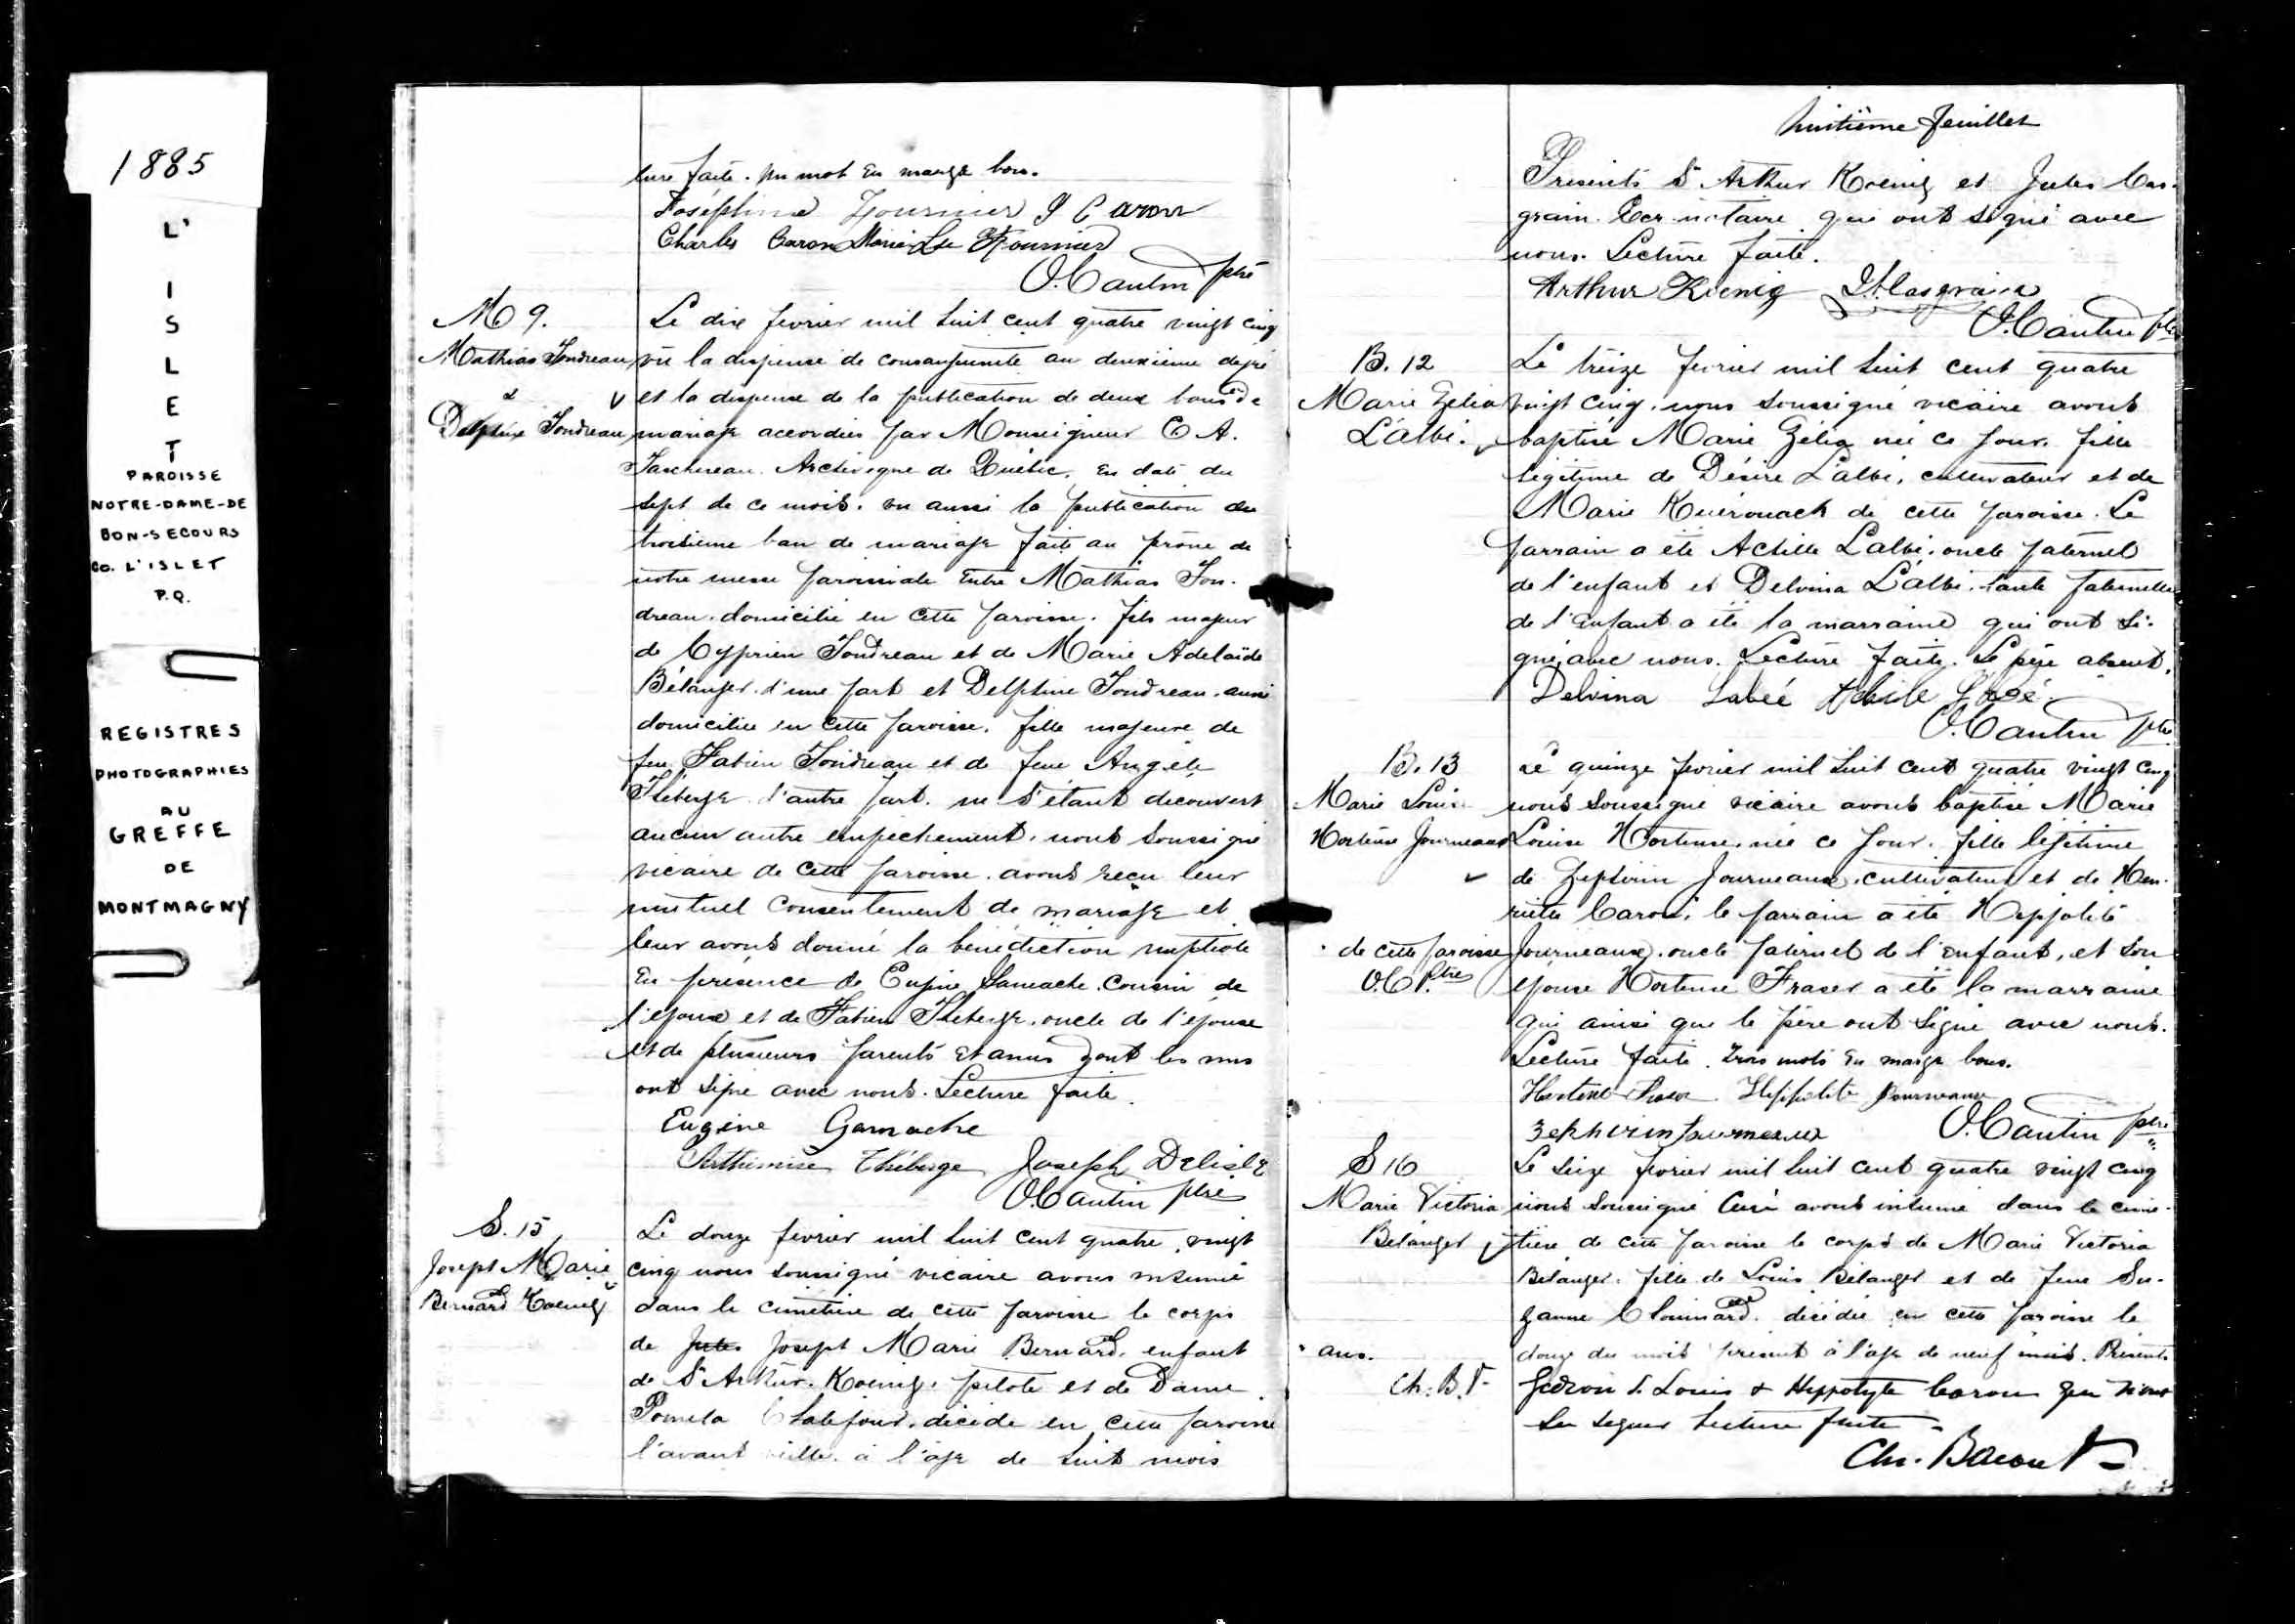 1885
L'
I
S
L
E
T
PAROISSE
NOTRE-DAME-DE
BON-SECOURS
Co. L'ISLET
P.Q.
REGISTRES
PHOTOGRAPHIES
AU
GREFFE
DE
MONTMAGNY
ture faite. un mot en marge bon.
Joséphine Fournier J C aron
Charles Caron Marie Lse Fournier
O. Cantin ptre
M 9.
Mathias Tondreau
&
Delphine Tondreau
Le dix fevrier mil huit cent quatre vingt cinq
vu la dispense de consanguinité au deuxieme degré
et la dispense de la publication de deux bans de
mariage accordées par Monseigneur E. A.
Taschereau. Archevêque de Québec. en date du
sept de ce mois. vu aussi la publication du
troisième ban de mariage faite au prône de
notre messe paroissiale entre Mathias Ton-
dreau. domicilié en cette paroisse. fils majeur
de Cyprien Tondreau et de Marie Adelaïde
Bélanger. d'une part et Delphine Tondreau. aussi
domiciliée en cette paroisse. fille majeure de
feu Fabien Tondreau et de feue Angèle
Théberge d'autre part. ne s'étant decouvert
aucun autre empêchement. nous soussigné
vicaire de cette paroisse. avons reçu leur
mutuel consentement de mariage et
leur avons donné la bénédiction nuptiale
en présence de Eugène Gamache. cousin de
l'époux et de Fabien Théberge. oncle de l'épouse
et de plusieurs parents et amis dont les uns
ont signé avec nous. Lecture faite.
Eugène Gamache
Arthémise Théberge Joseph Delisle
O. Cantin ptre
S. 15
Joseph Marie
Bernard Koenig
Le douze fevrier mil huit cent quatre vingt
cinq nous soussigné vicaire avons inhumé
dans le cimetière de cette paroisse le corps
de Jules Joseph Marie Bernard. enfant
de Sr Arthur Koenig. pilote et de Dame
Pamela Chalifour. décédé en cette paroisse
l'avant veille. à l'âge de huit mois
huitième feuillet
Présents Sr Arthur Koenig et Jules Cas-
grain. Ecr notaire qui ont signé avec
nous. Lecture faite.
Arthur Koenig Casgrain
O. Cantin ptre
B. 12
Marie Zélia
L'albé.
Le treize fevrier mil huit cent quatre
vingt cinq. nous soussigné vicaire avons
baptisé Marie Zélia née ce jour. fille
légitime de Désiré L'albé. cultivateur et de
Marie Kuérouack de cette paroisse. Le
parrain a été Achille L'albé. oncle paternel
de l'enfant et Delvina L'albé. tante paternelle
de l'enfant a été la marraine qui ont si-
gné avec nous. Lecture faite. Le père absent.
Delvina Labéé Achile
O. Cantin ptre
B. 13
Marie Louise
Hortense Journeaux
Le quinze fevrier mil huit cent quatre vingt cinq
nous soussigné vicaire avons baptisé Marie
Louise Hortense. née ce jour. fille légitime
de Zephirin Journeaux. cultivateur et de Hen-
riette Caron. le parrain a été Hyppolite
de cette paroisse
O.C. Ptre
Journeaux. oncle paternel de l'enfant. et son
épouse Hortense Fraser a été la marraine
qui ainsi que le père ont signé avec nous.
Lecture faite. Trois mots en marge bons.
Hortense Fraser Hippolite Journeaux
Zephirin Journeaux O. Cantin ptre
S 16
Marie Victoria
Bélanger
Le seize fevrier mil huit cent quatre vingt cinq
nous soussigné Curé avons inhumé dans le cime-
tière de cette paroisse le corps de Marie Victoria
Bélanger. fille de Louis Bélanger et de feue Su-
zanne Chouinard. décédée en cette paroisse le
douze du mois présent à l'âge de neuf mois. Présents
ans.
Ch. B. P
Gédéon St Louis & Hyppolyte Caron qui n'ont
su signer lecture faite
Chs. Bacon P